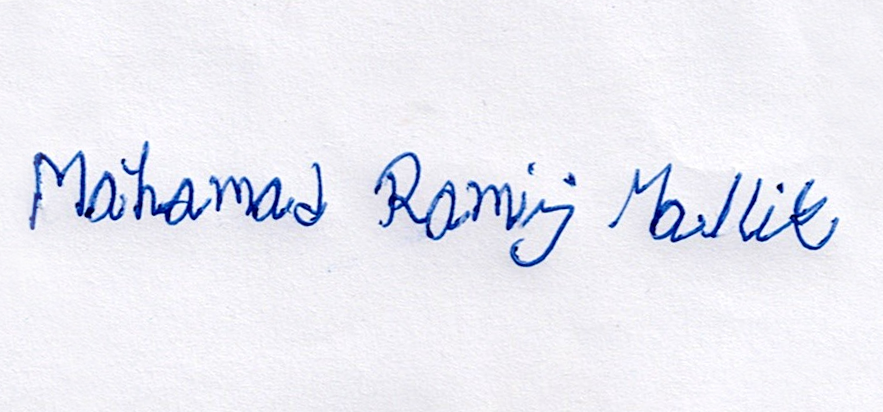 Mahamad Ramij Mallik